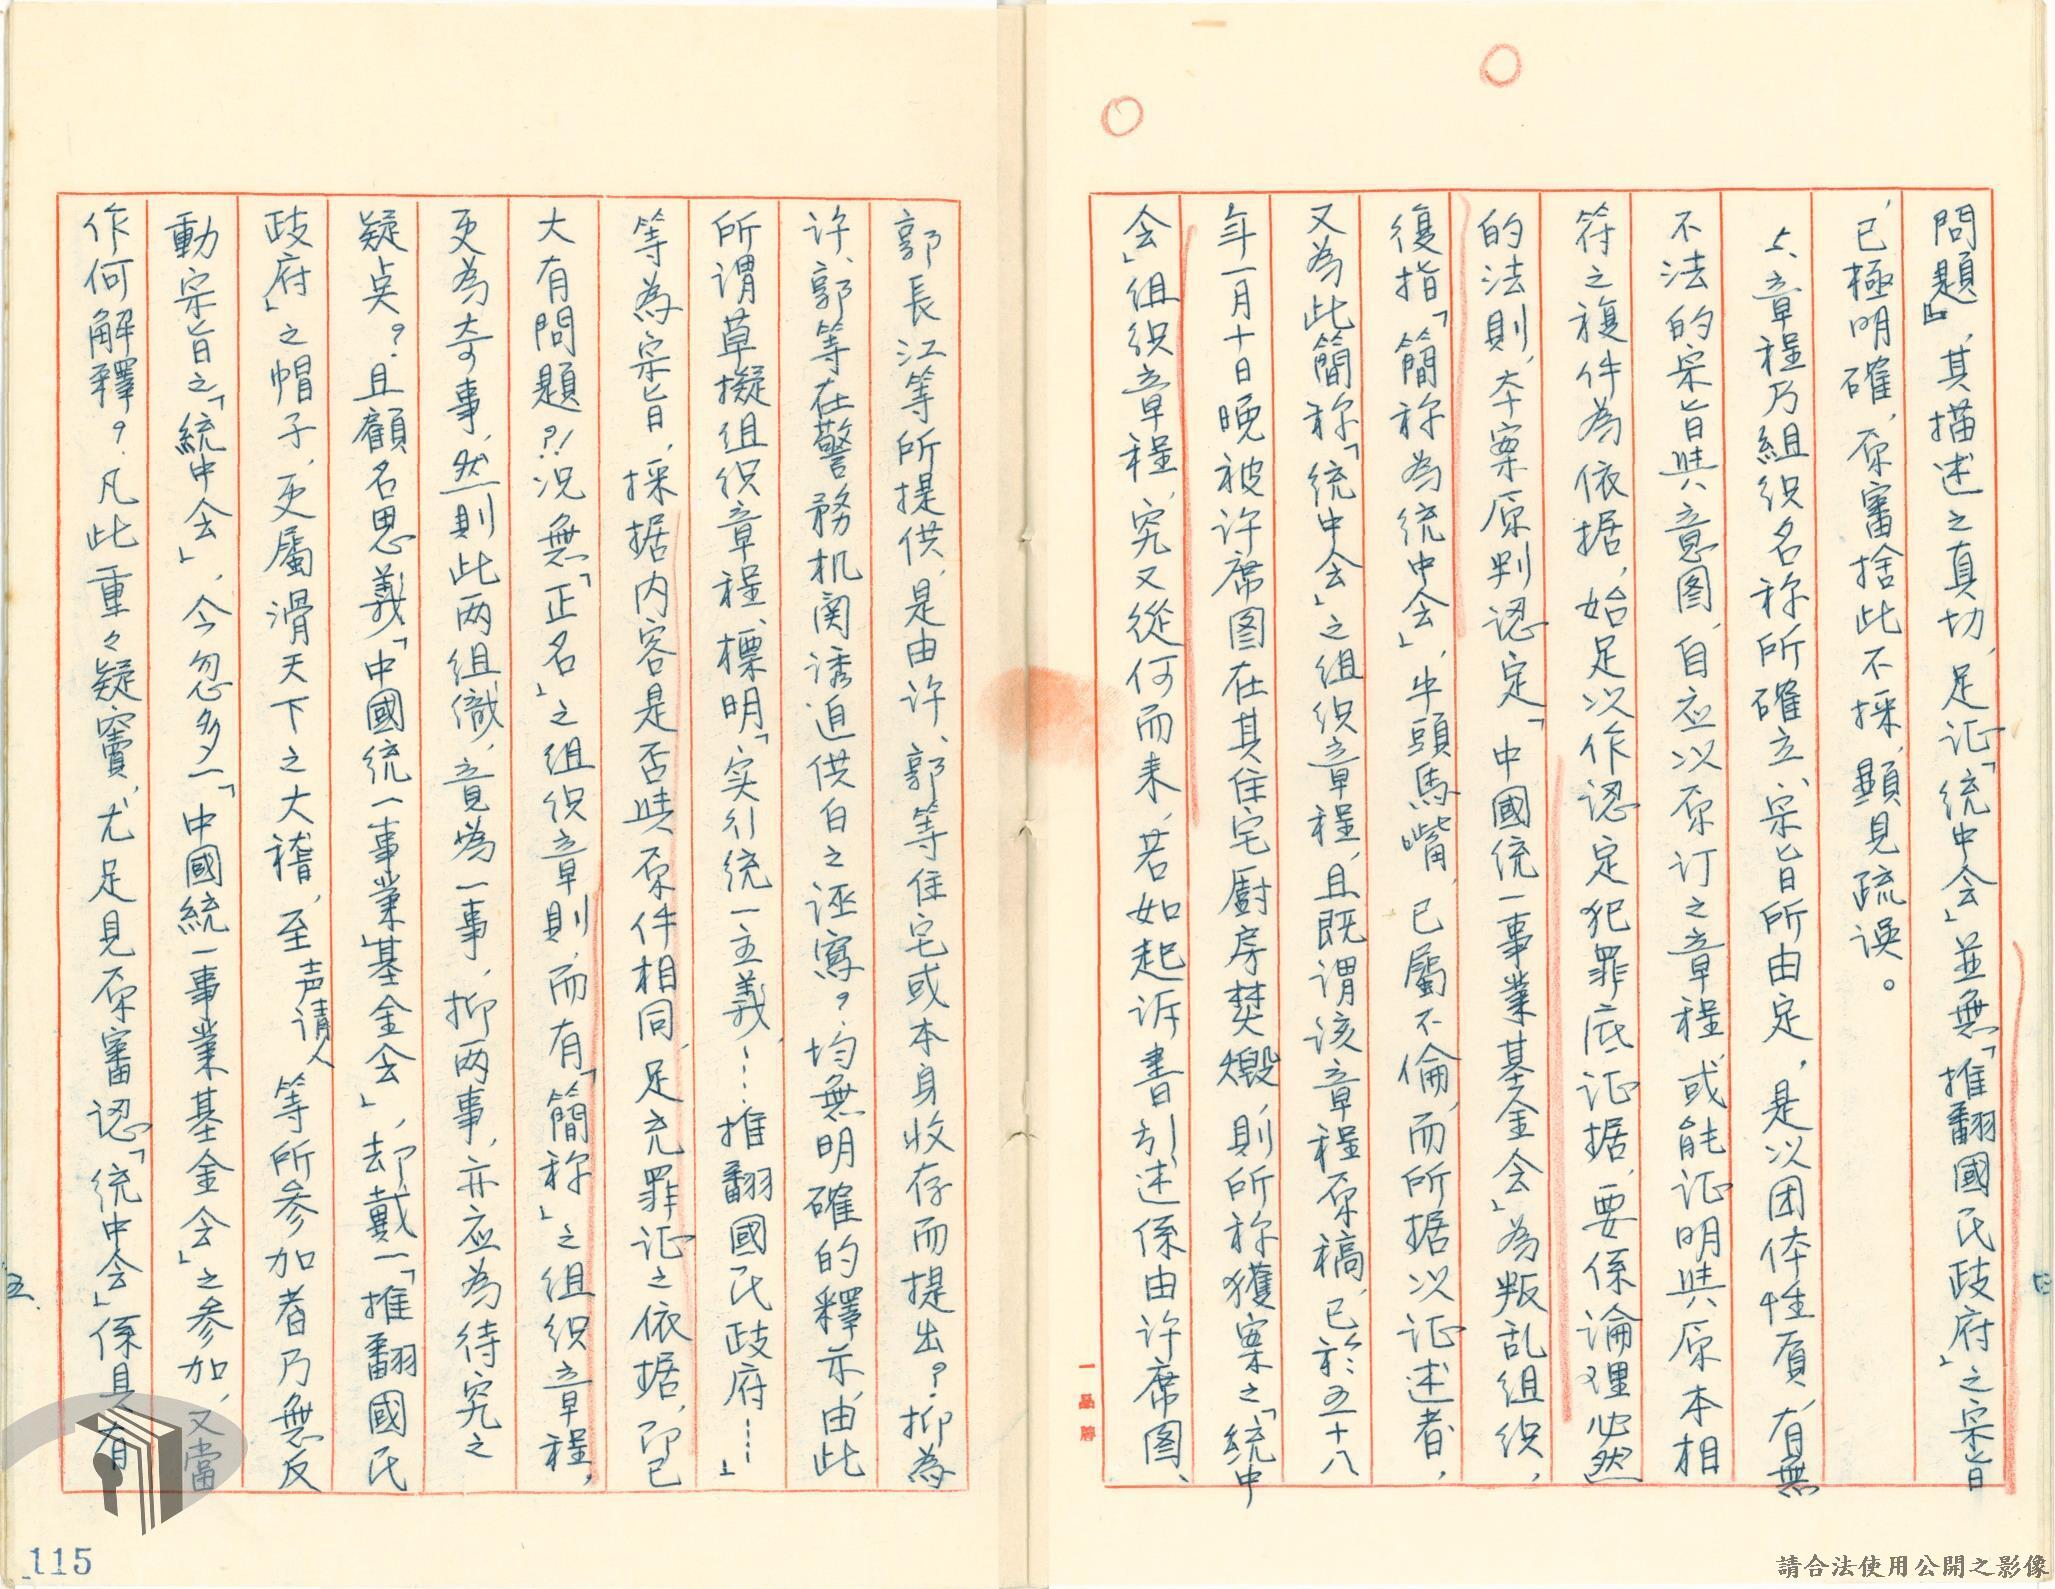 問題」，其描述之真切，足证「統中会」並無「推翻國民政府」之宗旨
已極明確，原審捨此不採，顯見疏误。
上、章程乃組织名称所確立、宗旨所由定，是以团体性质，有無
不法的宗旨與意图，自应以原订之章程或能证明與原本相
符之複件為依据，始足以作認定犯罪底证据，要係論理必然
的法則，本案原判認定「中國统一事業基金会」為叛乱组织，
復指「簡称為统中会」，牛頭馬嘴，已屬不倫，而所据以证述者，
又為此簡称「统中会」之组织章程，且既谓该章程原稿，已於五十八
年一月十日晚被许席图在其住宅廚房焚燬，則所称獲案之「統中
会」组织章程，究又從何而来，若如起诉書引述係由许席图、
郭長江等所提供，是由许、郭等住宅或本身收存而提出？抑為
许、郭等在警務机関诱迫供白之诬寫？均無明確的釋示，由此
所谓草擬组织章程，標明「实行统一主義……推翻國民政府……」
等為宗旨，採据内容是否與原件相同，足充罪证之依据，即已
大有問題？！况無「正名」之组织章則，而有「簡称」之组织章程，
更為奇事，然則此两组織，竟為一事，抑两事，亦应為待究之
疑点？且顧名思義「中國统一事業基金会」，却戴一「推翻國民
政府」之帽子，更屬滑天下之大稽，至声请人等所参加者乃無反
動宗旨之「統中会」，今忽多一「中國統一事業基金会」之参加，又當
作何解釋？凡此重々疑竇，尤足見原審認「統中会」係具有
五、
一品牌
115
請合法使用公開之影像